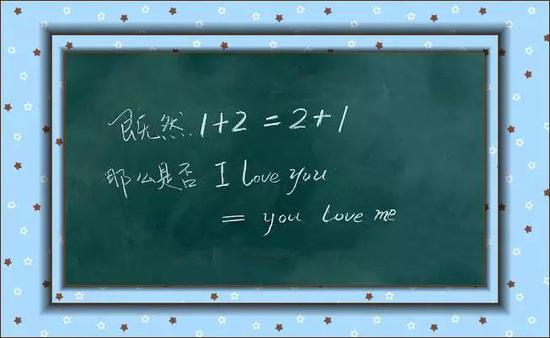 既然 1+2=2+1
那么是否 I love you
= you love me